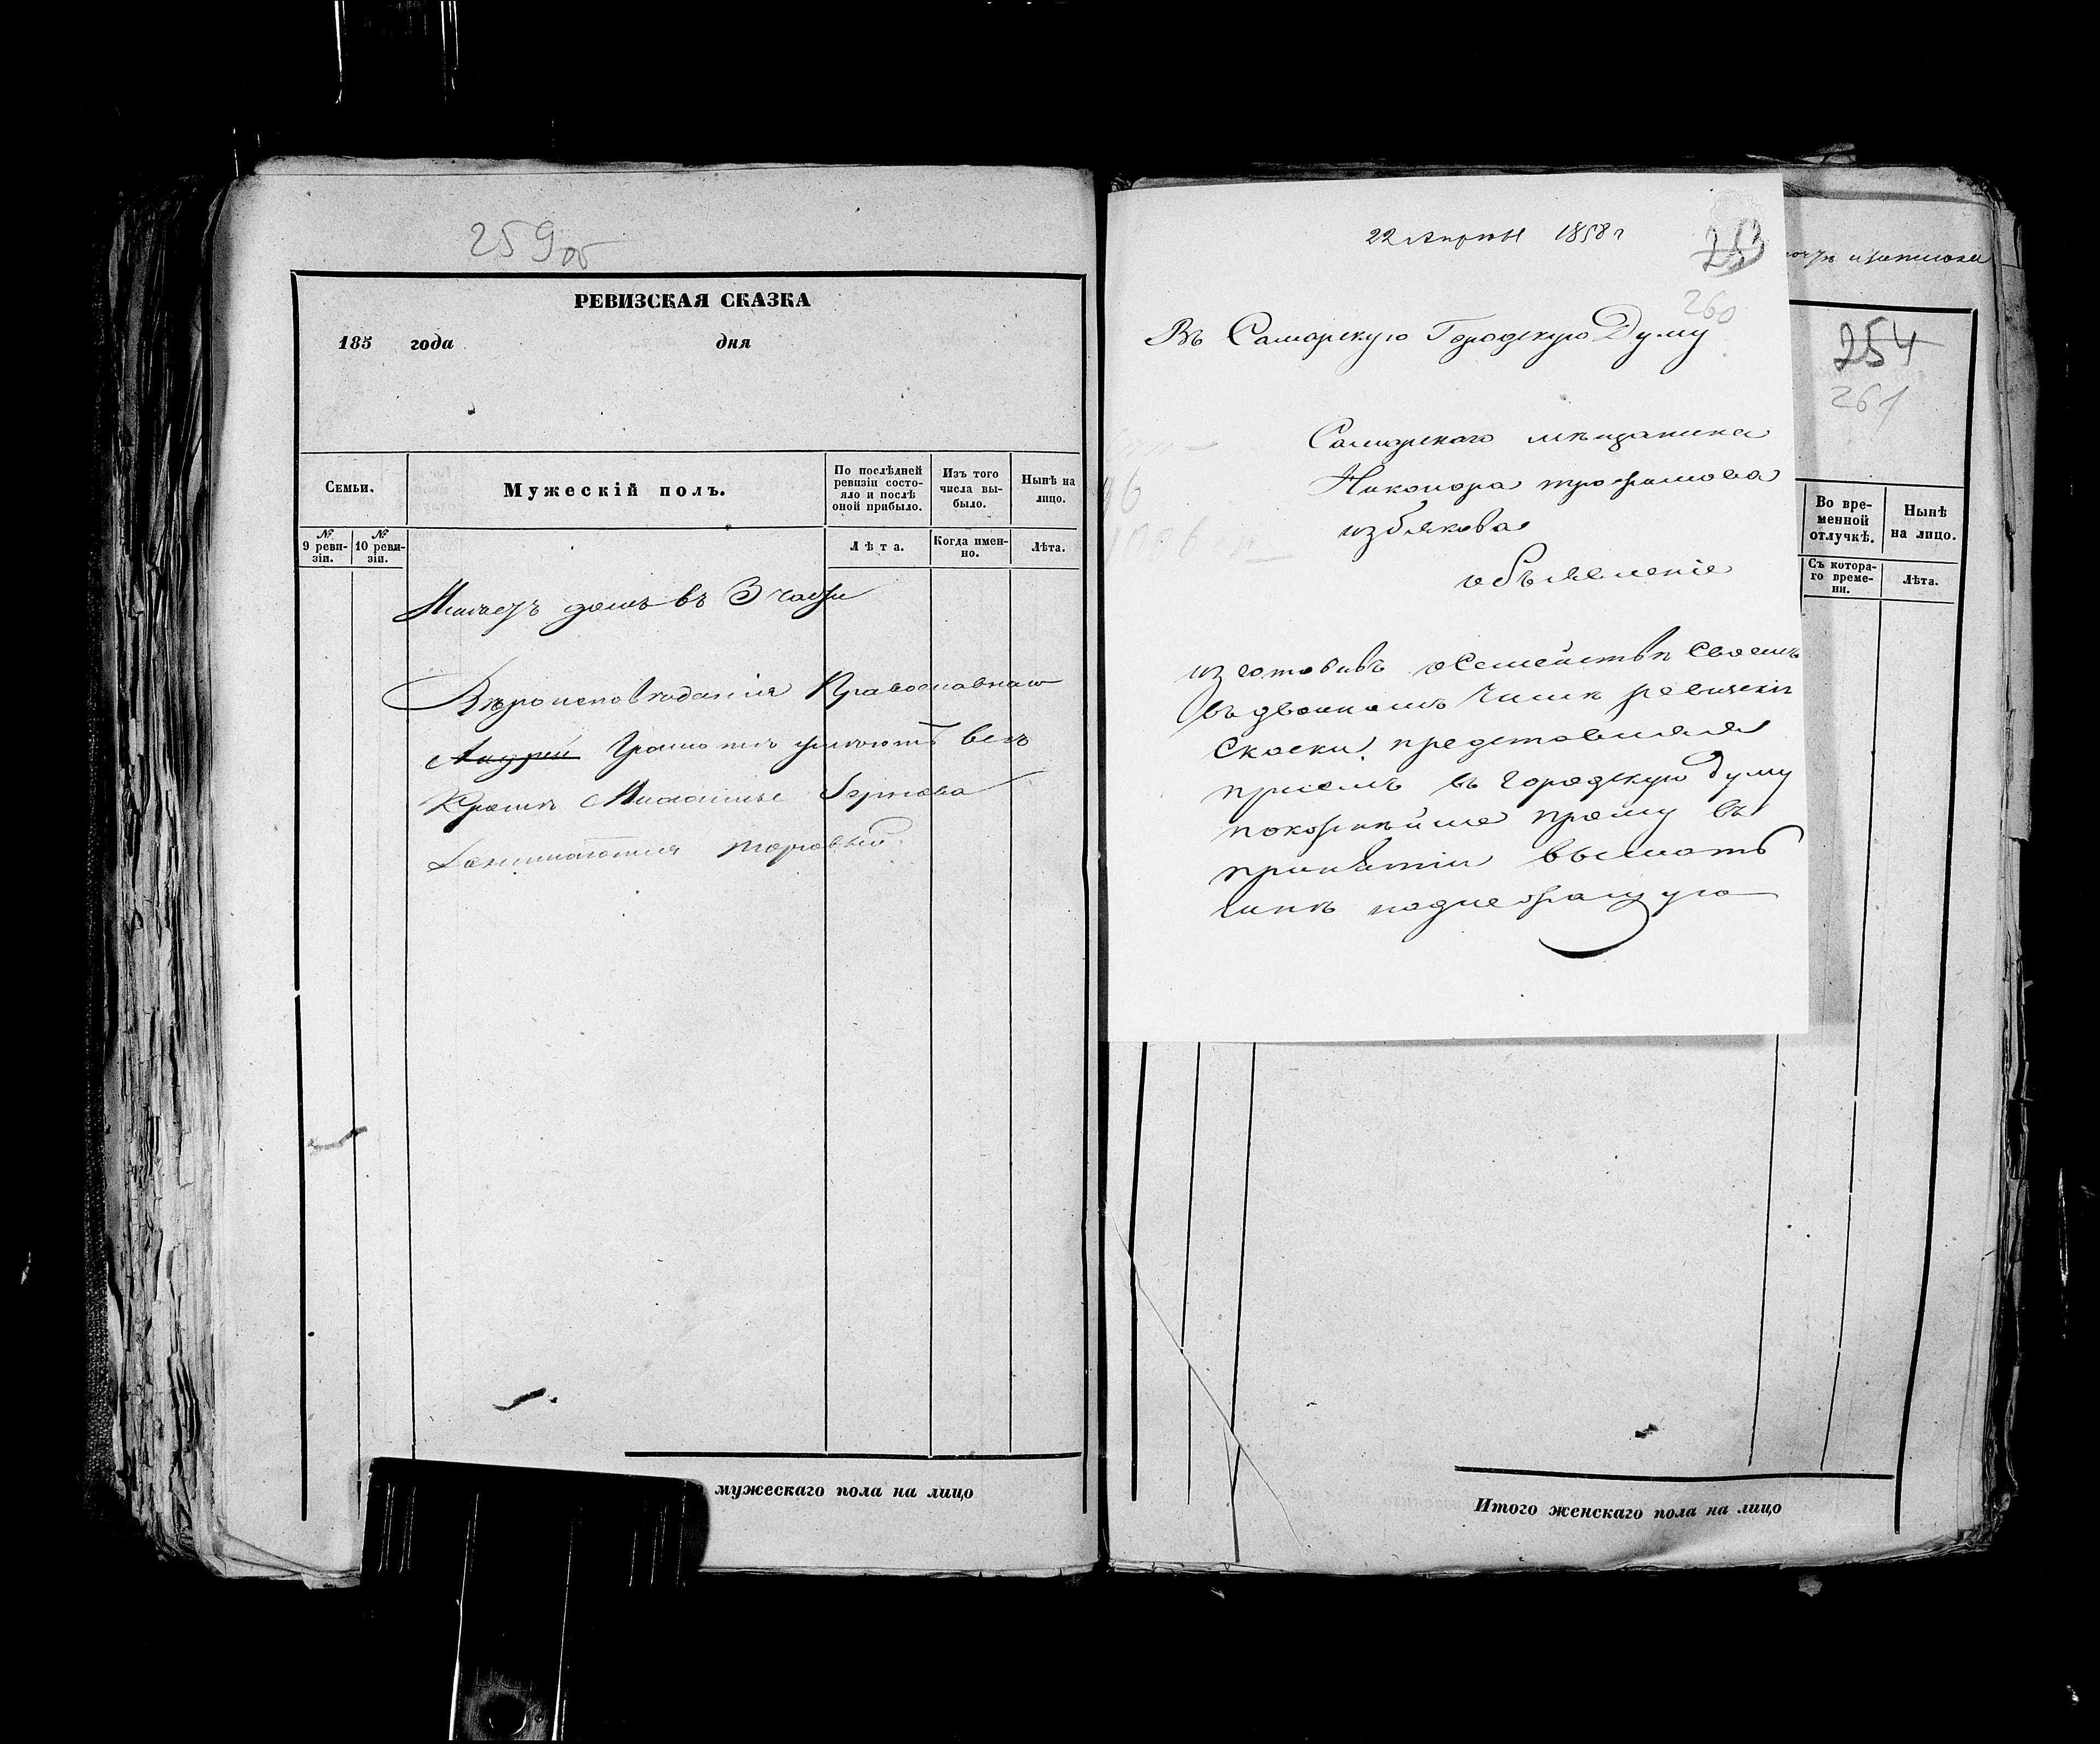 259 об
РЕВИЗСКАЯ СКАЗКА
185 года дня
Семьи.
Мужескій полъ.
По послѣдней ревизіи состо-
яло и послѣ
оной прибыло.
Изъ того
числа вы-
было.
Нынѣ на
лицо.
№
9 реви-
зіи.
№
10 реви-
зіи.
Лѣта.
Когда имен-
но.
Лѣта.
Имеетъ домъ въ 3 части
Вероисповедания Православнаго
Андрей Грамоте умеютъ все
Кроме
Занимаются торговлей
мужескаго пола на лицо
22 Апреля 1858 г
253
260
Въ Самарскую Городскую Думу
Самарскаго мещанина
Никонора трофимова
избякова
объявление
изготовивъ о Семействе своемъ
въ двойномъ числе ревизскiе
Скаски представляя
присемъ въ Городскую Думу
покорнейше прошу въ
принятии выдать
254
261
Во вре-
менной
отлучкѣ.
Нынѣ
на лицо.
Съ котора-
го време-
ни.
Лѣта.
Итого женскаго пола на лицо